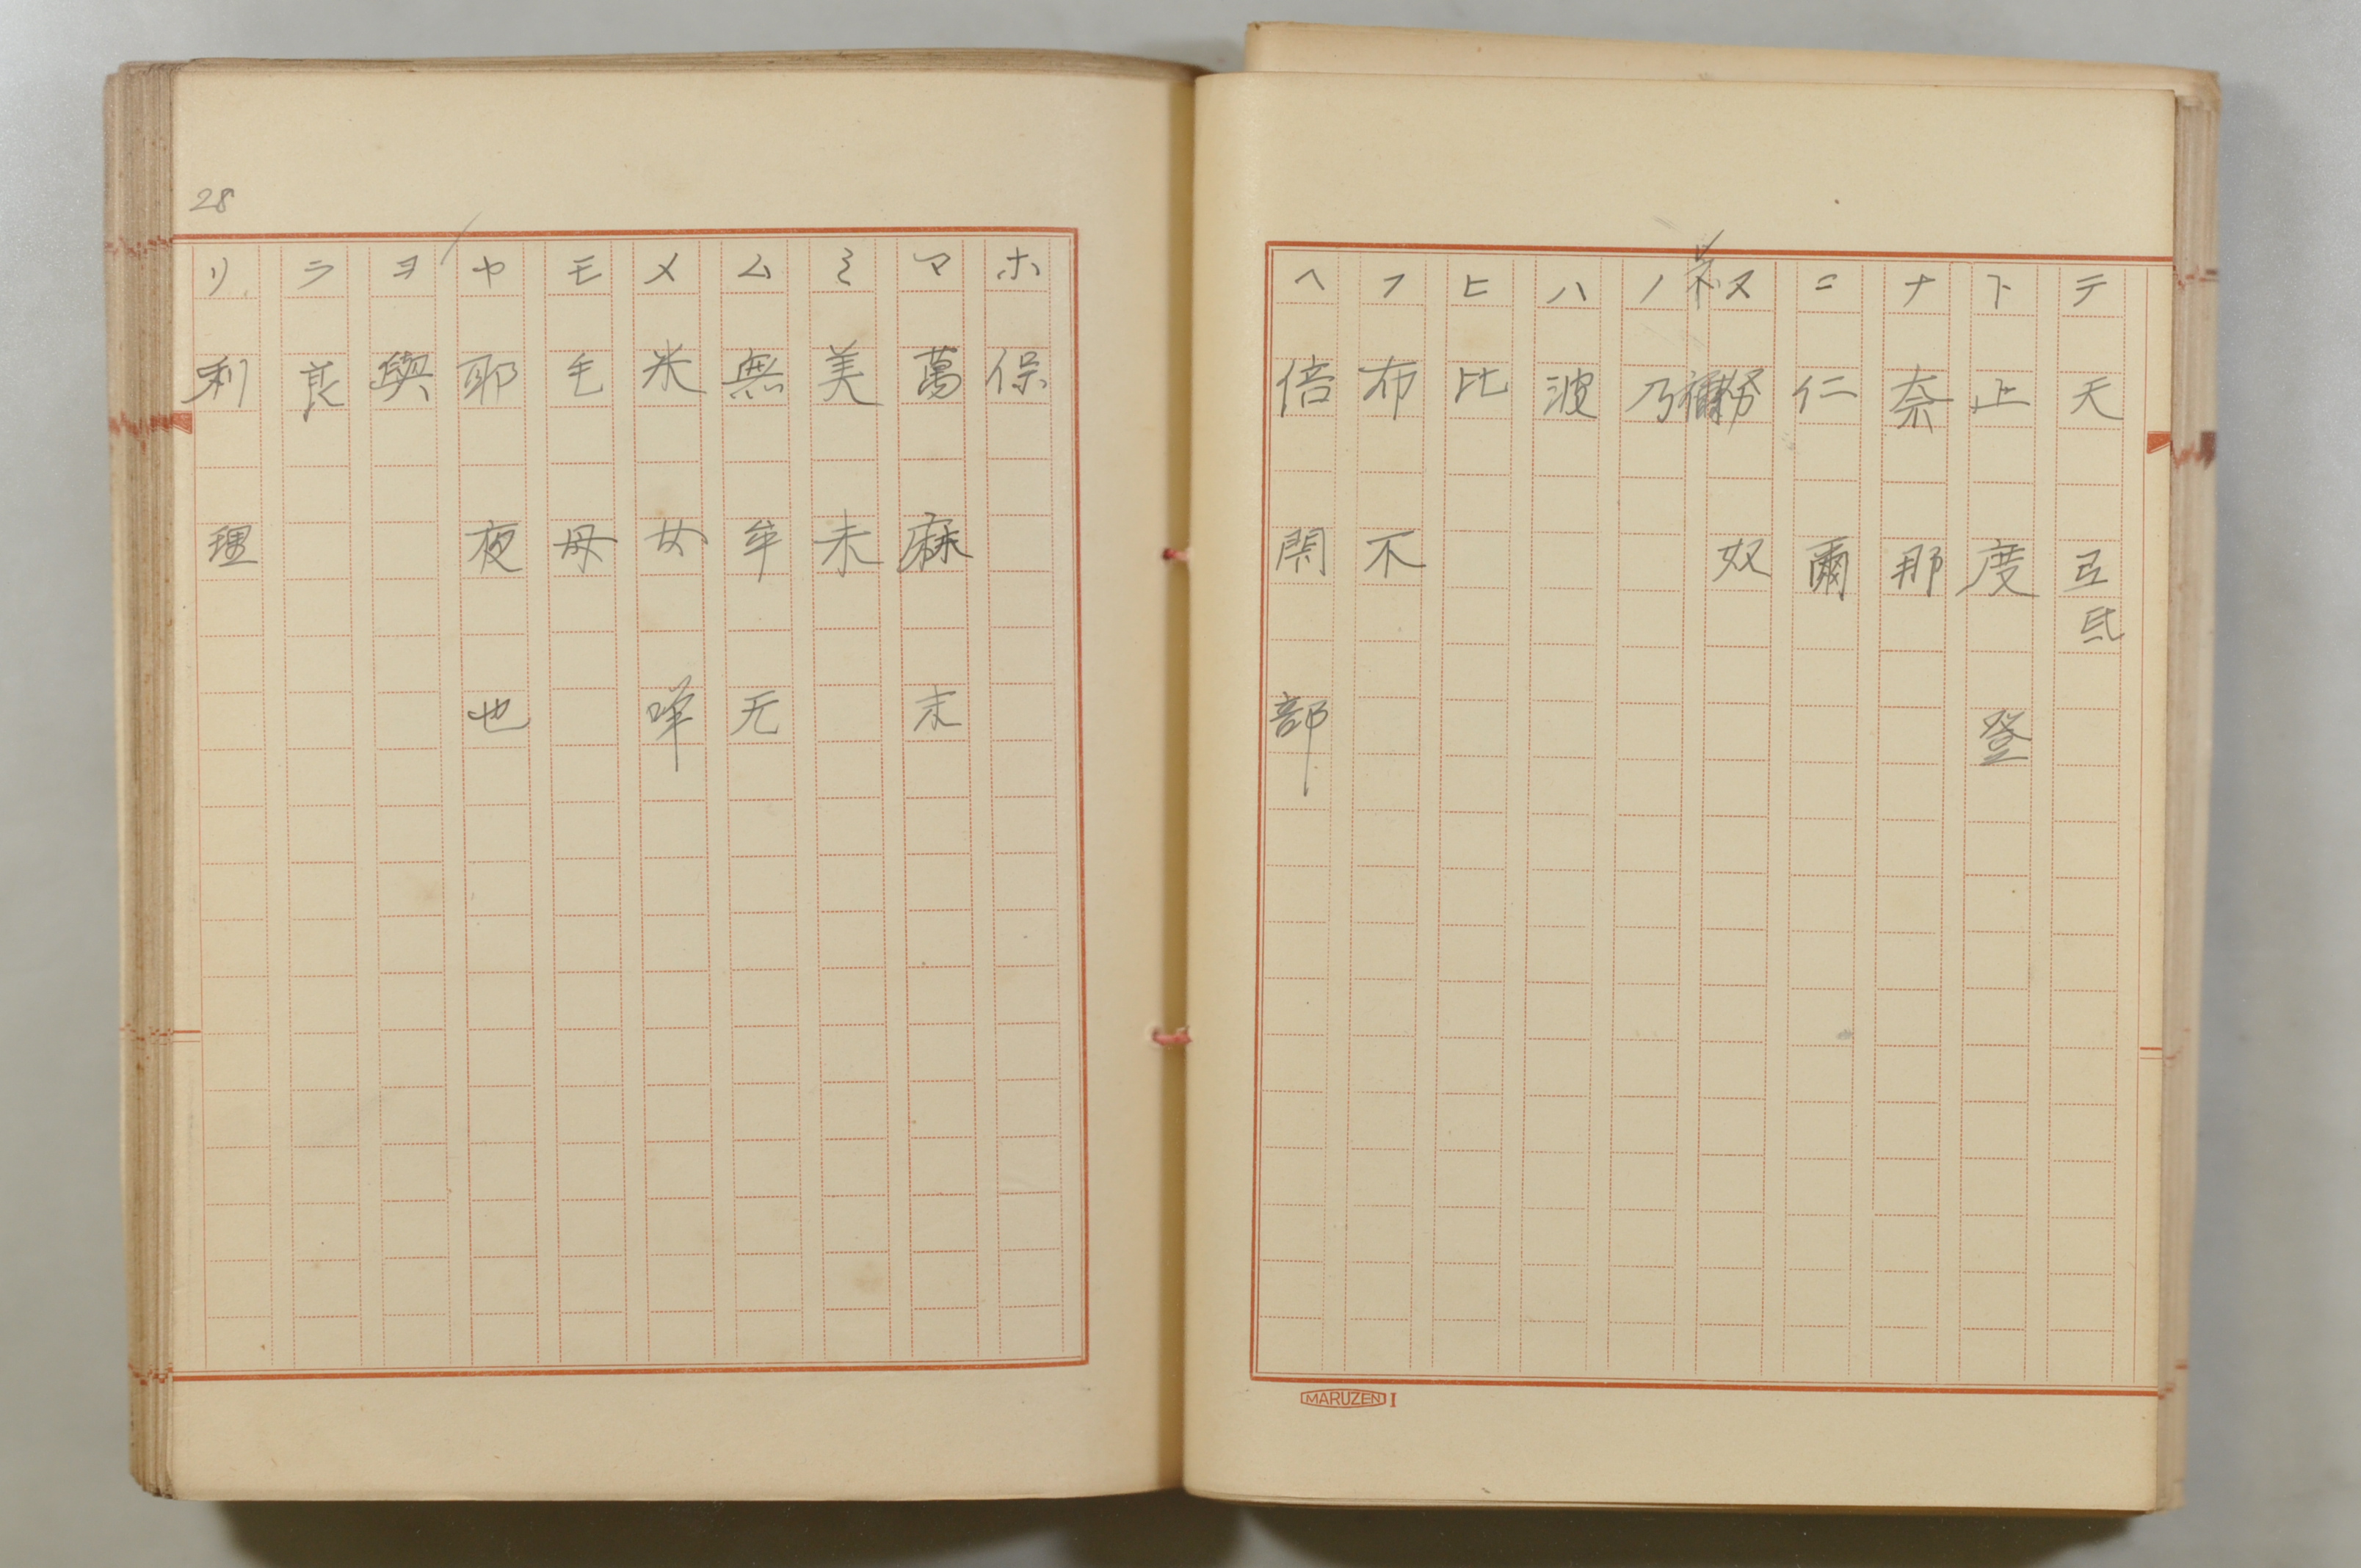 テ 天 弖 氐
ト 止 度 登
ナ 奈 那
ニ 仁 爾
ヌ 努 奴
ネ 禰
ノ 乃
ハ 波
ヒ 比
フ 布 不
ヘ 倍 閇 部
MARUZEN I
ホ 保
マ 萬 麻 末
ミ 美 未
ム 無 牟 无
メ 米 女 咩
モ 毛 母
ヤ 耶 夜 也
ヨ 與
ラ 良
リ 利 理
28